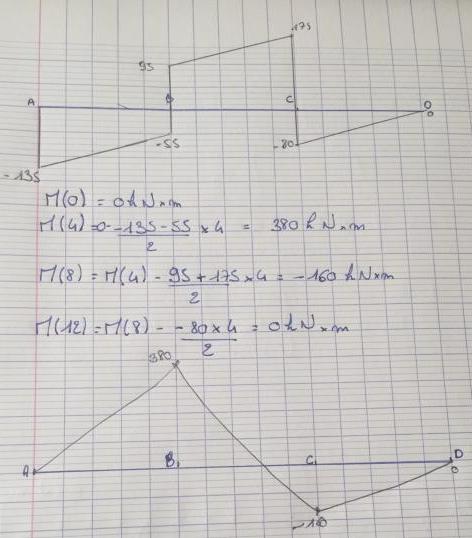 175
95
A B C D
0
-55
-80
-135
M(0) = 0 kN×m
M(4) = 0 - -135-55/2 ×4 = 380 kN×m
M(8) = M(4) - 95+175/2 ×4 = -160 kN×m
M(12) = M(8) - -80×4/2 = 0 kN×m
380
A B C D
0
-160